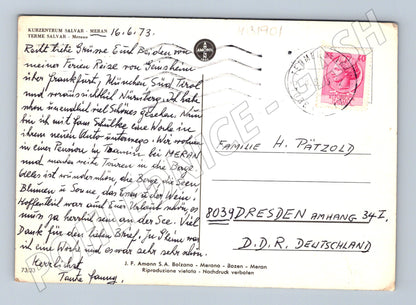 KURZENTRUM SALVAR - MERAN
TERME SALVAR - Merano
16.6.73.
Recht liebe Grüsse Euch Beiden von
meiner Ferien Reise von
über Frankfurt, München, Süd Tirol
und voraussichtlich Nürnberg. Ich habe
schon unendlich viel Schönes gesehen. Nun
bin ich mit Fam. Schultke eine Woche in
ihrem neuen Auto unterwegs. Wir wohnen
in einer Pension in bei MERAN
und machen weite Touren in die Berge
Alles ist wunderschön, die Berge, die Seen
Blumen u Sonne, das Essen u der Wein!
Hoffentlich war auch Euer Urlaub schön,
so herrlich an der See. Viel
Dank für den lieben Brief. In
ich eine Woche und es war sehr sehr schön
Herzlichst
Tante
73/23
AMONN
FAMILIE H. PÄTZOLD
8039 DRESDEN ANHANG 34 I,
D.D.R. DEUTSCHLAND
J. F. Amonn S.A. Bolzano - Merano - Bozen - Meran
Riproduzione vietata - Nachdruck verboten